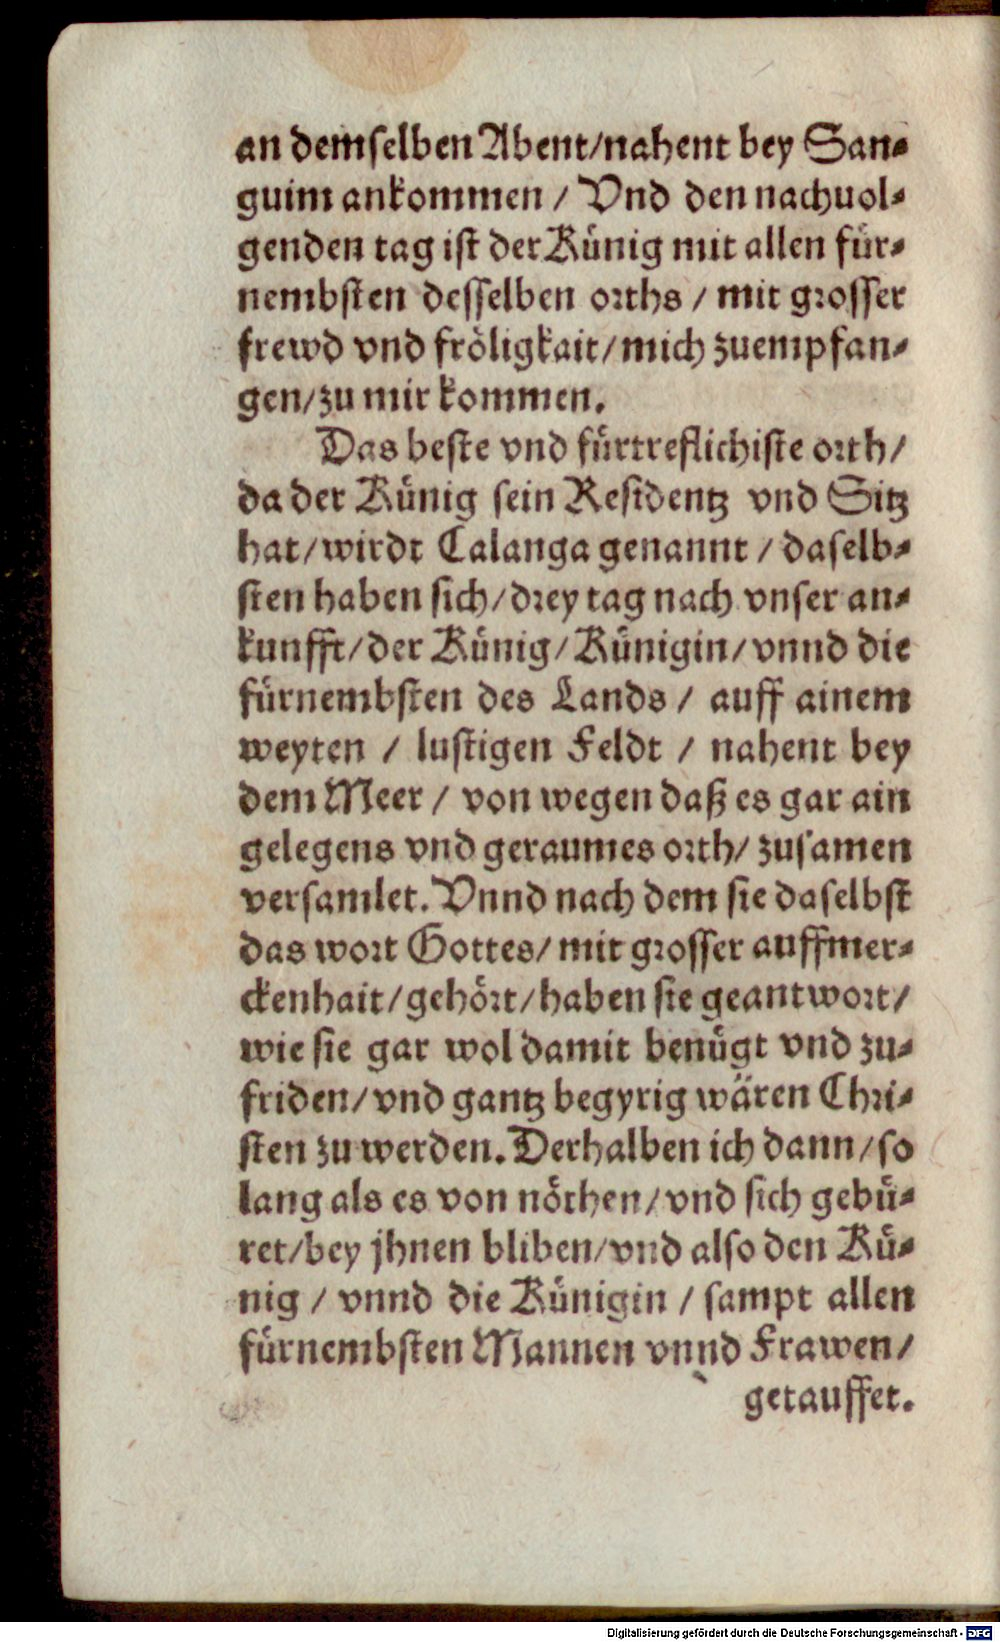 an demselben Abent/nahent bey San⸗
guim ankommen / Vnd den nachuol⸗
genden tag ist der Künig mit allen für⸗
nembsten desselben orths / mit grosser
frewd vnd fröligkait/mich zuempfan⸗
gen/zu mir kommen.
Das beste vnd fürtreflichiste orth/
da der Künig sein Residentz vnd Sitz
hat/wirdt Calanga genannt / daselb⸗
sten haben sich/drey tag nach vnser an⸗
kunfft/der Künig/Künigin/vnnd die
fürnembsten des Lands / auff ainem
weyten / lustigen Feldt / nahent bey
dem Meer / von wegen daß es gar ain
gelegens vnd geraumes orth/ zusamen
versamlet. Vnnd nach dem sie daselbst
das wort Gottes/mit grosser auffmer⸗
ckenhait/gehört/haben sie geantwort/
wie sie gar wol damit benügt vnd zu⸗
friden/vnd gantz begyrig wären Chri⸗
sten zu werden. Derhalben ich dann/so
lang als es von nöthen/vnd sich gebü⸗
ret/bey jhnen bliben/vnd also den Kü⸗
nig / vnnd die Künigin / sampt allen
fürnembsten Mannen vnnd Frawen/
getauffet.
Digitalisierung gefördert durch die Deutsche Forschungsgemeinschaft - DFG